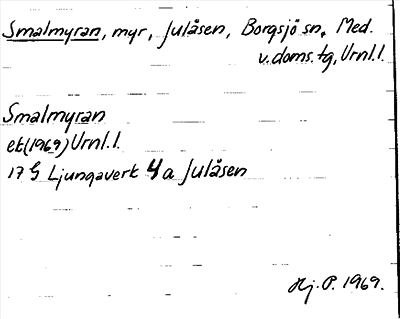 Smalmyran, myr, Julåsen, Borgsjö sn, Med.
v. doms. tg, Urnl.l.
Smalmyran
et (1969) Urnl.l.
17 G Ljungaverk 4a Julåsen
Hj. P. 1969.